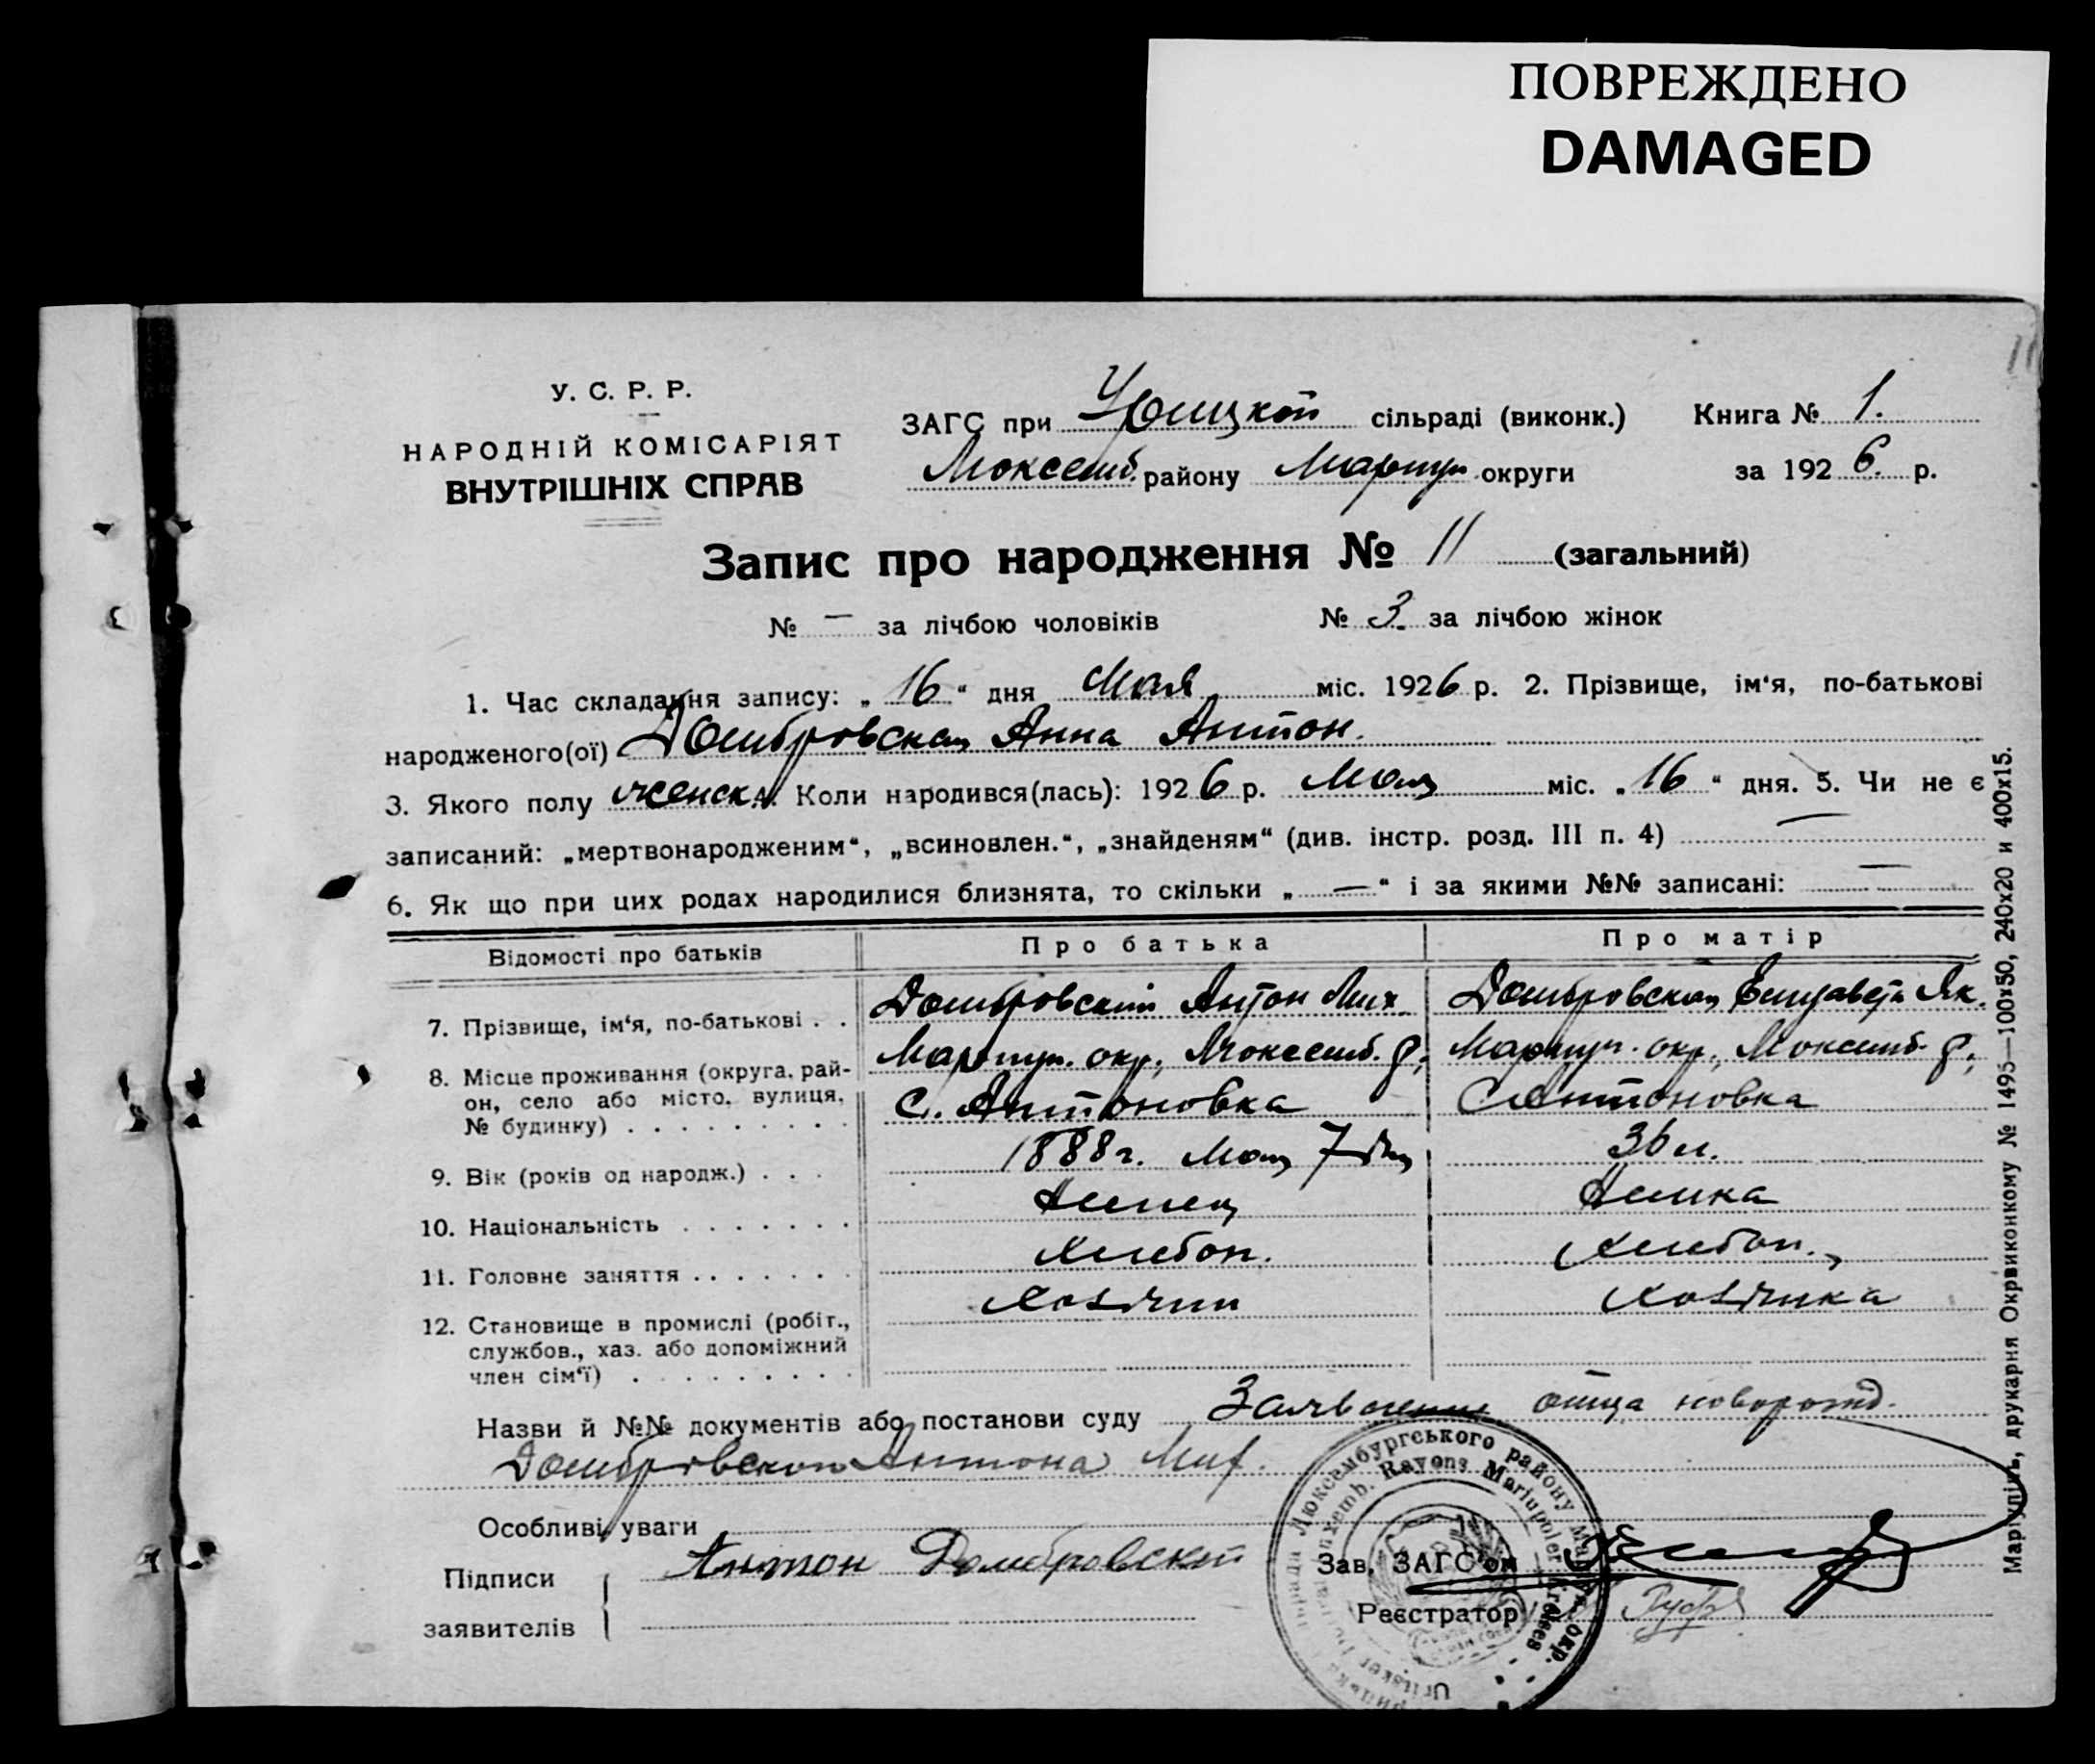 ПОВРЕЖДЕНО
DAMAGED
11
У. С. Р. Р.
НАРОДНІЙ КОМІСАРІЯТ
ВНУТРІШНІХ СПРАВ
ЗАГС при Урицкой сільраді (виконк.) Книга № 1.
Люксемб. району Мариуп округи за 1926. р.
Запис про народження № 11 (загальний)
№ — за лічбою чоловіків № 3. за лічбою жінок
1. Час складання запису: „16“ дня Мая міс. 1926 р. 2. Прізвище, ім‘я, по-батькові
народженого(ої) Домбровская Анна Антон.
3. Якого полу женск. 4. Коли народився(лась): 1926 р. Мая міс. „16“ дня. 5. Чи не є
записаний: „мертвонародженим“, „всиновлен.“, „знайденям“ (див. інстр. розд. III п. 4) —
6. Як що при цих родах народилися близнята, то скільки „—“ і за якими №№ записані: —
Відомості про батьків Про батька Про матір
7. Прізвище, ім‘я, по-батькові . . Домбровский Антон Мих Домбровская Елизавета Як.
8. Місце проживання (округа, рай- Мариуп. окр., Люксемб. р., Мариуп. окр., Люксемб. р.,
он, село або місто, вулиця, с. Антоновка с. Антоновка
№ будинку) . . . . . . . . .
9. Вік (років од народж.) . . . 1888 г. Мая 7 дня 36 л.
10. Національність . . . . . . . Немец Немка
11. Головне заняття . . . . . . . Хлебоп. Хлебоп.,
12. Становище в промислі (робіт., Хозяин Хозяйка
службов., хаз. або допоміжний
член сім‘ї) . . . . . . . . .
Назви й №№ документів або постанови суду Заявление отца новорожд.
Домбровского Антона Мих.
Особливі уваги
Підписи Антон Домбровский Зав. ЗАГС‘ом
заявителів Реєстратор
Люксембургського району Маріуп. окр.
Luxemb. Rayons Mariupoler Kreises
Uritsker
Маріупіль, друкарня Окрвиконкому № 1495—100×50, 240×20 и 400×15.